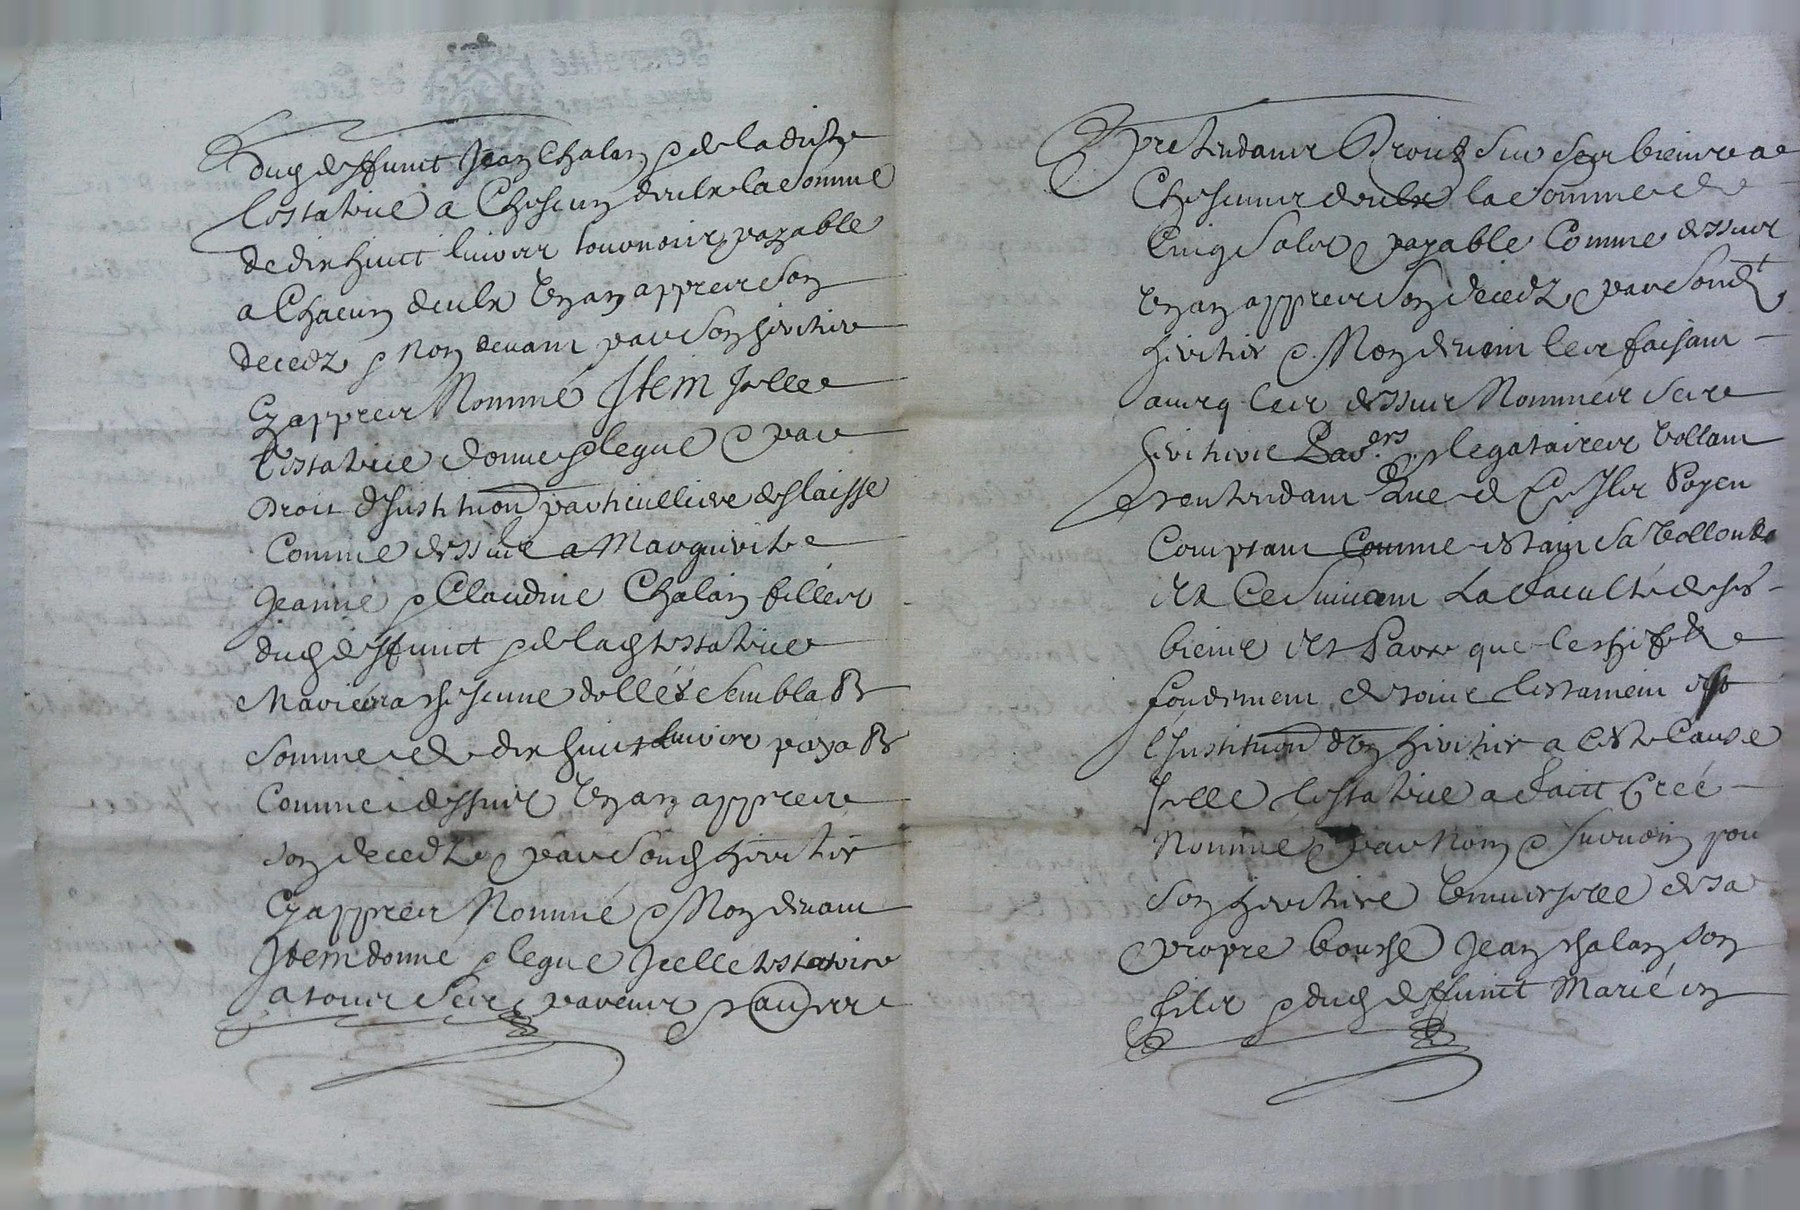 dud deffunct Jean Chalan & de la dicte
testatrice a Chescun d'eulx la Somme
de dix huict livres tournois, payable
a Chacun d'eulx Ung an apprers Son
decedz & Non devant par Son heritier
Cy appres Nommé Item Icelle
testatrice donne & legue & par
Droit d'Institution particulliere delaisse
Comme dessus a Marguerite
Jeanne & Claudine Chalan filles
dud deffunct & de lad testatrice
Mariées a Chescune d'elles Semblable
Somme de dix huict livres payable
Comme dessus Ung an apprers
Son decedz par Sond heritier
Cy appres Nommé & Non devant
Item donne & legue Icelle testatrice
a tous Ses parents & aultres
pretendants Droictz Sur Ses biens a
Chescung d'eulx la Somme de
Cinq Solz payable Comme dessus
Ung an appres Son decedz par Sondt
heritier & Non devant les faisant
avecq les dessus Nommés Ses
heritiers Par.ers & legataires Vollant
& entendant Que de Ce Ilz Soyent
Comptant Comme estant Sa Vollonté
et Ce Suivant La faculté de Ses
biens et Parce que le chef &
fondement de tout testament est
l'Institution d'Ung heritier a Ceste Cause
Icelle testatrice a faict Creé
Nommé par Nom & Surnom pour
Son heritier Universelle de sa
propre bouche Jean Chalan son
filz & dud deffunct Marié en